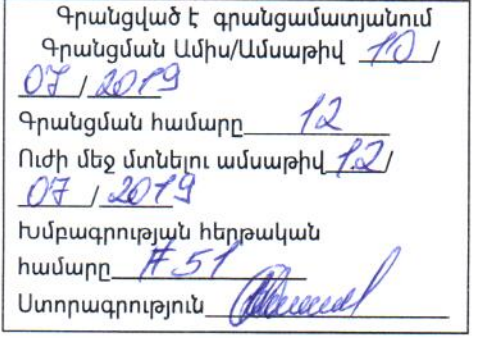 Գրանցված է գրանցամատյանում
Գրանցման Ամիս/Ամսաթիվ 10 /
07 / 2019
Գրանցման համարը 12
Ուժի մեջ մտնելու ամսաթիվ 12/
07 / 2019
Խմբագրության հերթական
համարը #51
Ստորագրություն